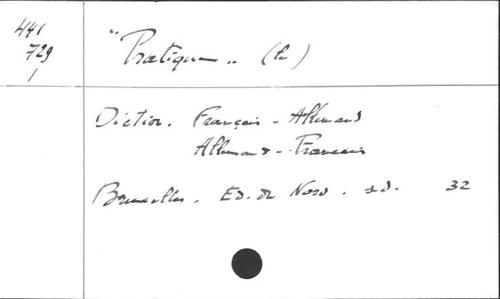 441
729
1
"Pratique" (le)
Diction. Français - Allemand
Allemand - Français
Bruxelles. Ed. du Nord. s.d. 32